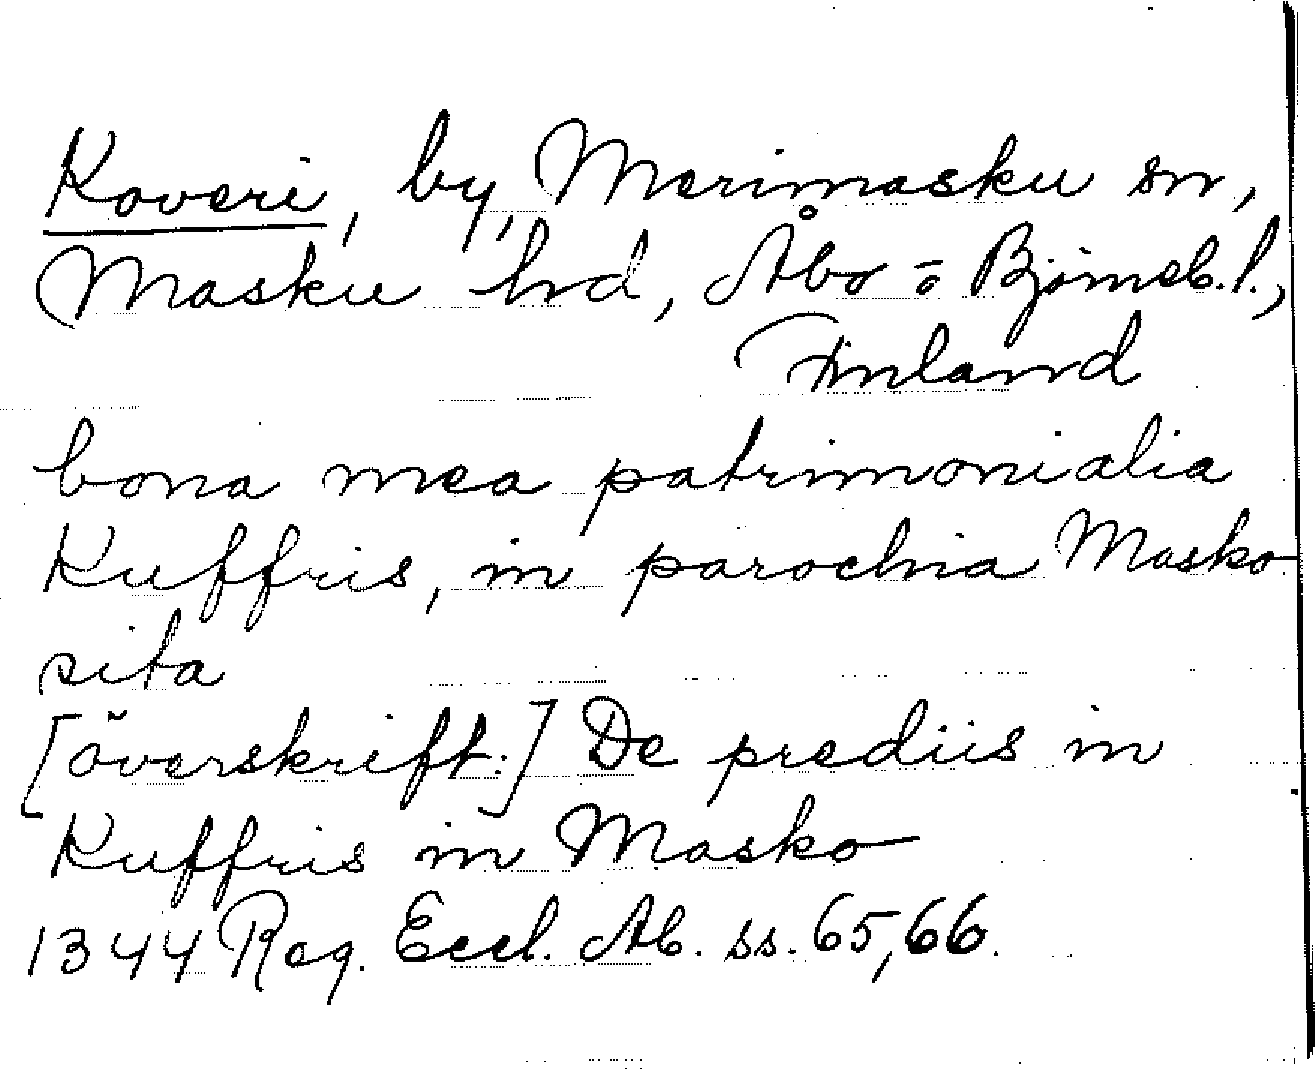 Koveri, by, Merimasku sn,
Masku hd, Åbo o Björneb. l.,
Finland
bona mea patrimonialia
Kuffris, in parochia Masko
sita
[överskrift:] De prediis in
Kuffris in Masko
1344 Reg. Eccl. Ab. ss. 65, 66.